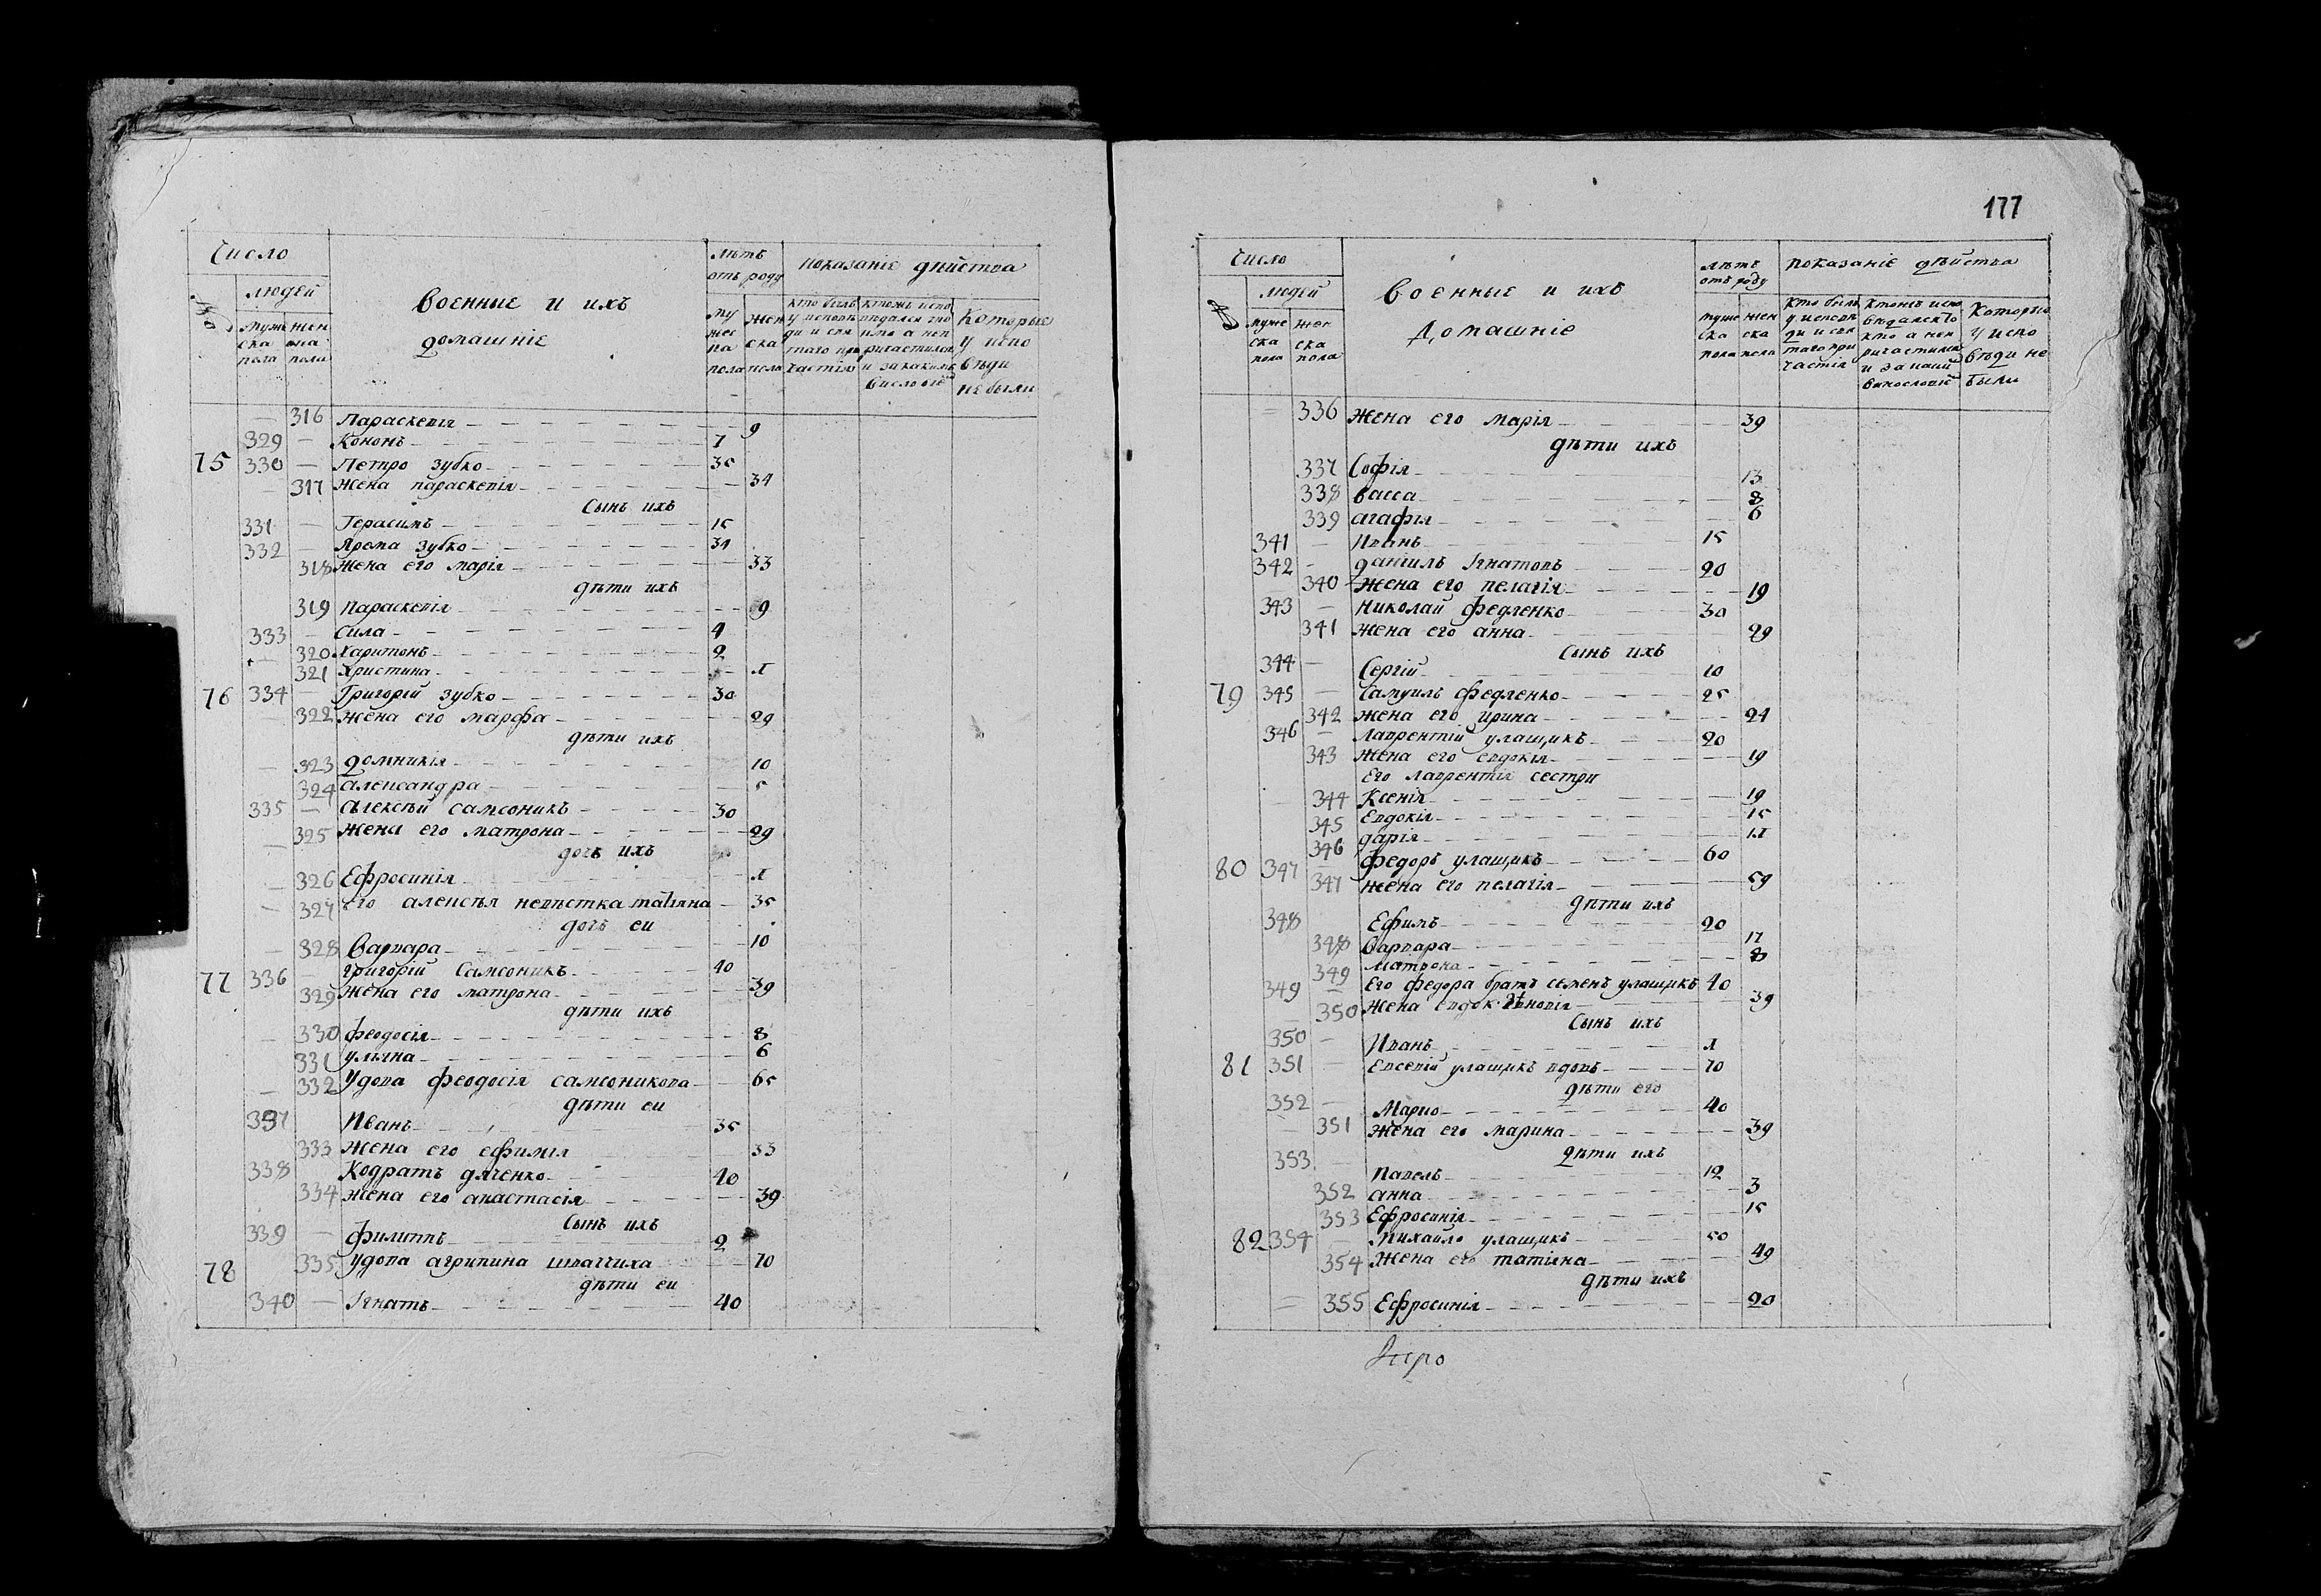 Число
людей
муже ска пола
жен ска пола
военные и ихъ
домашніе
лѣтъ
отъ роду
му жес ка пола
жен ска пола
показаніе дѣйства
кто былъ у исповѣди и свя таго при частія
которые у испо вѣди не были
316 Параскевія 9
329 Кононъ 7
75 330 Петро зубко 35
317 жена параскевія 34
Сынъ ихъ
331 Герасимъ 15
332 Ярема зубко 34
318 жена его марія 33
дѣти ихъ
319 Параскевія 9
333 сила 4
320 Харитонъ 2
321 Христина 1
76 334 Григорій зубко 30
322 жена его марфа 29
дѣти ихъ
323 домникія 10
324 александра 5
335 алексѣй самсоникъ 30
325 жена его матрона 29
дочь ихъ
326 Ефросинія 1
327 его алексѣя невѣстка матіяна 35
дочь еи
328 Варвара 10
77 336 григорій Самсоникъ 40
329 жена его матрона 39
дѣти ихъ
330 феодосія 8
331 уляна 6
332 удова феодосія самсоникова 65
дѣти еи
337 Иванъ 35
333 жена его ефимія 33
338 Кодратъ дяченко 40
334 жена его анастасія 39
Сынъ ихъ
339 филиппъ 2
78 335 удова агрипина швачиха 70
дѣти еи
340 Ігнатъ 40
177
Число
людей
муже ска пола
жен ска пола
военные и ихъ
домашніе
лѣтъ
отъ роду
муже ска пола
жен ска пола
показаніе дѣйства
кто былъ у исповѣ ди и свя таго при частія
которіе у испо вѣди не были
336 жена его марія 39
дѣти ихъ
337 Софія 13
338 васса 8
339 агафія 6
341 Иванъ 15
342 даніилъ Ігнатовъ 20
340 жена его пелагія 19
343 николай федленко 30
341 жена его анна 29
Сынъ ихъ
344 Сергій 10
79 345 Самуилъ федленко 25
342 жена его ирина 24
346 лаврентій улащикъ 20
343 жена его евдокія 19
его лаврентія сестри
344 Ксенія 19
345 Евдокія 15
346 дарія 11
80 347 федоръ улащикъ 60
347 жена его пелагія 59
дѣти ихъ
348 Ефимъ 20
348 варвара 17
349 матрона 8
349 его федора братъ семенъ улащикъ 40
350 жена 39
Сынъ ихъ
350 Иванъ 1
81 351 Евсевій улащикъ вдовъ 70
дѣти его
352 Марко 40
351 жена его марина 39
дѣти ихъ
353 павелъ 12
352 анна 3
353 Ефросинія 15
82 354 михайло улащикъ 50
354 жена его татіяна 49
дѣти ихъ
355 Ефросинія 20